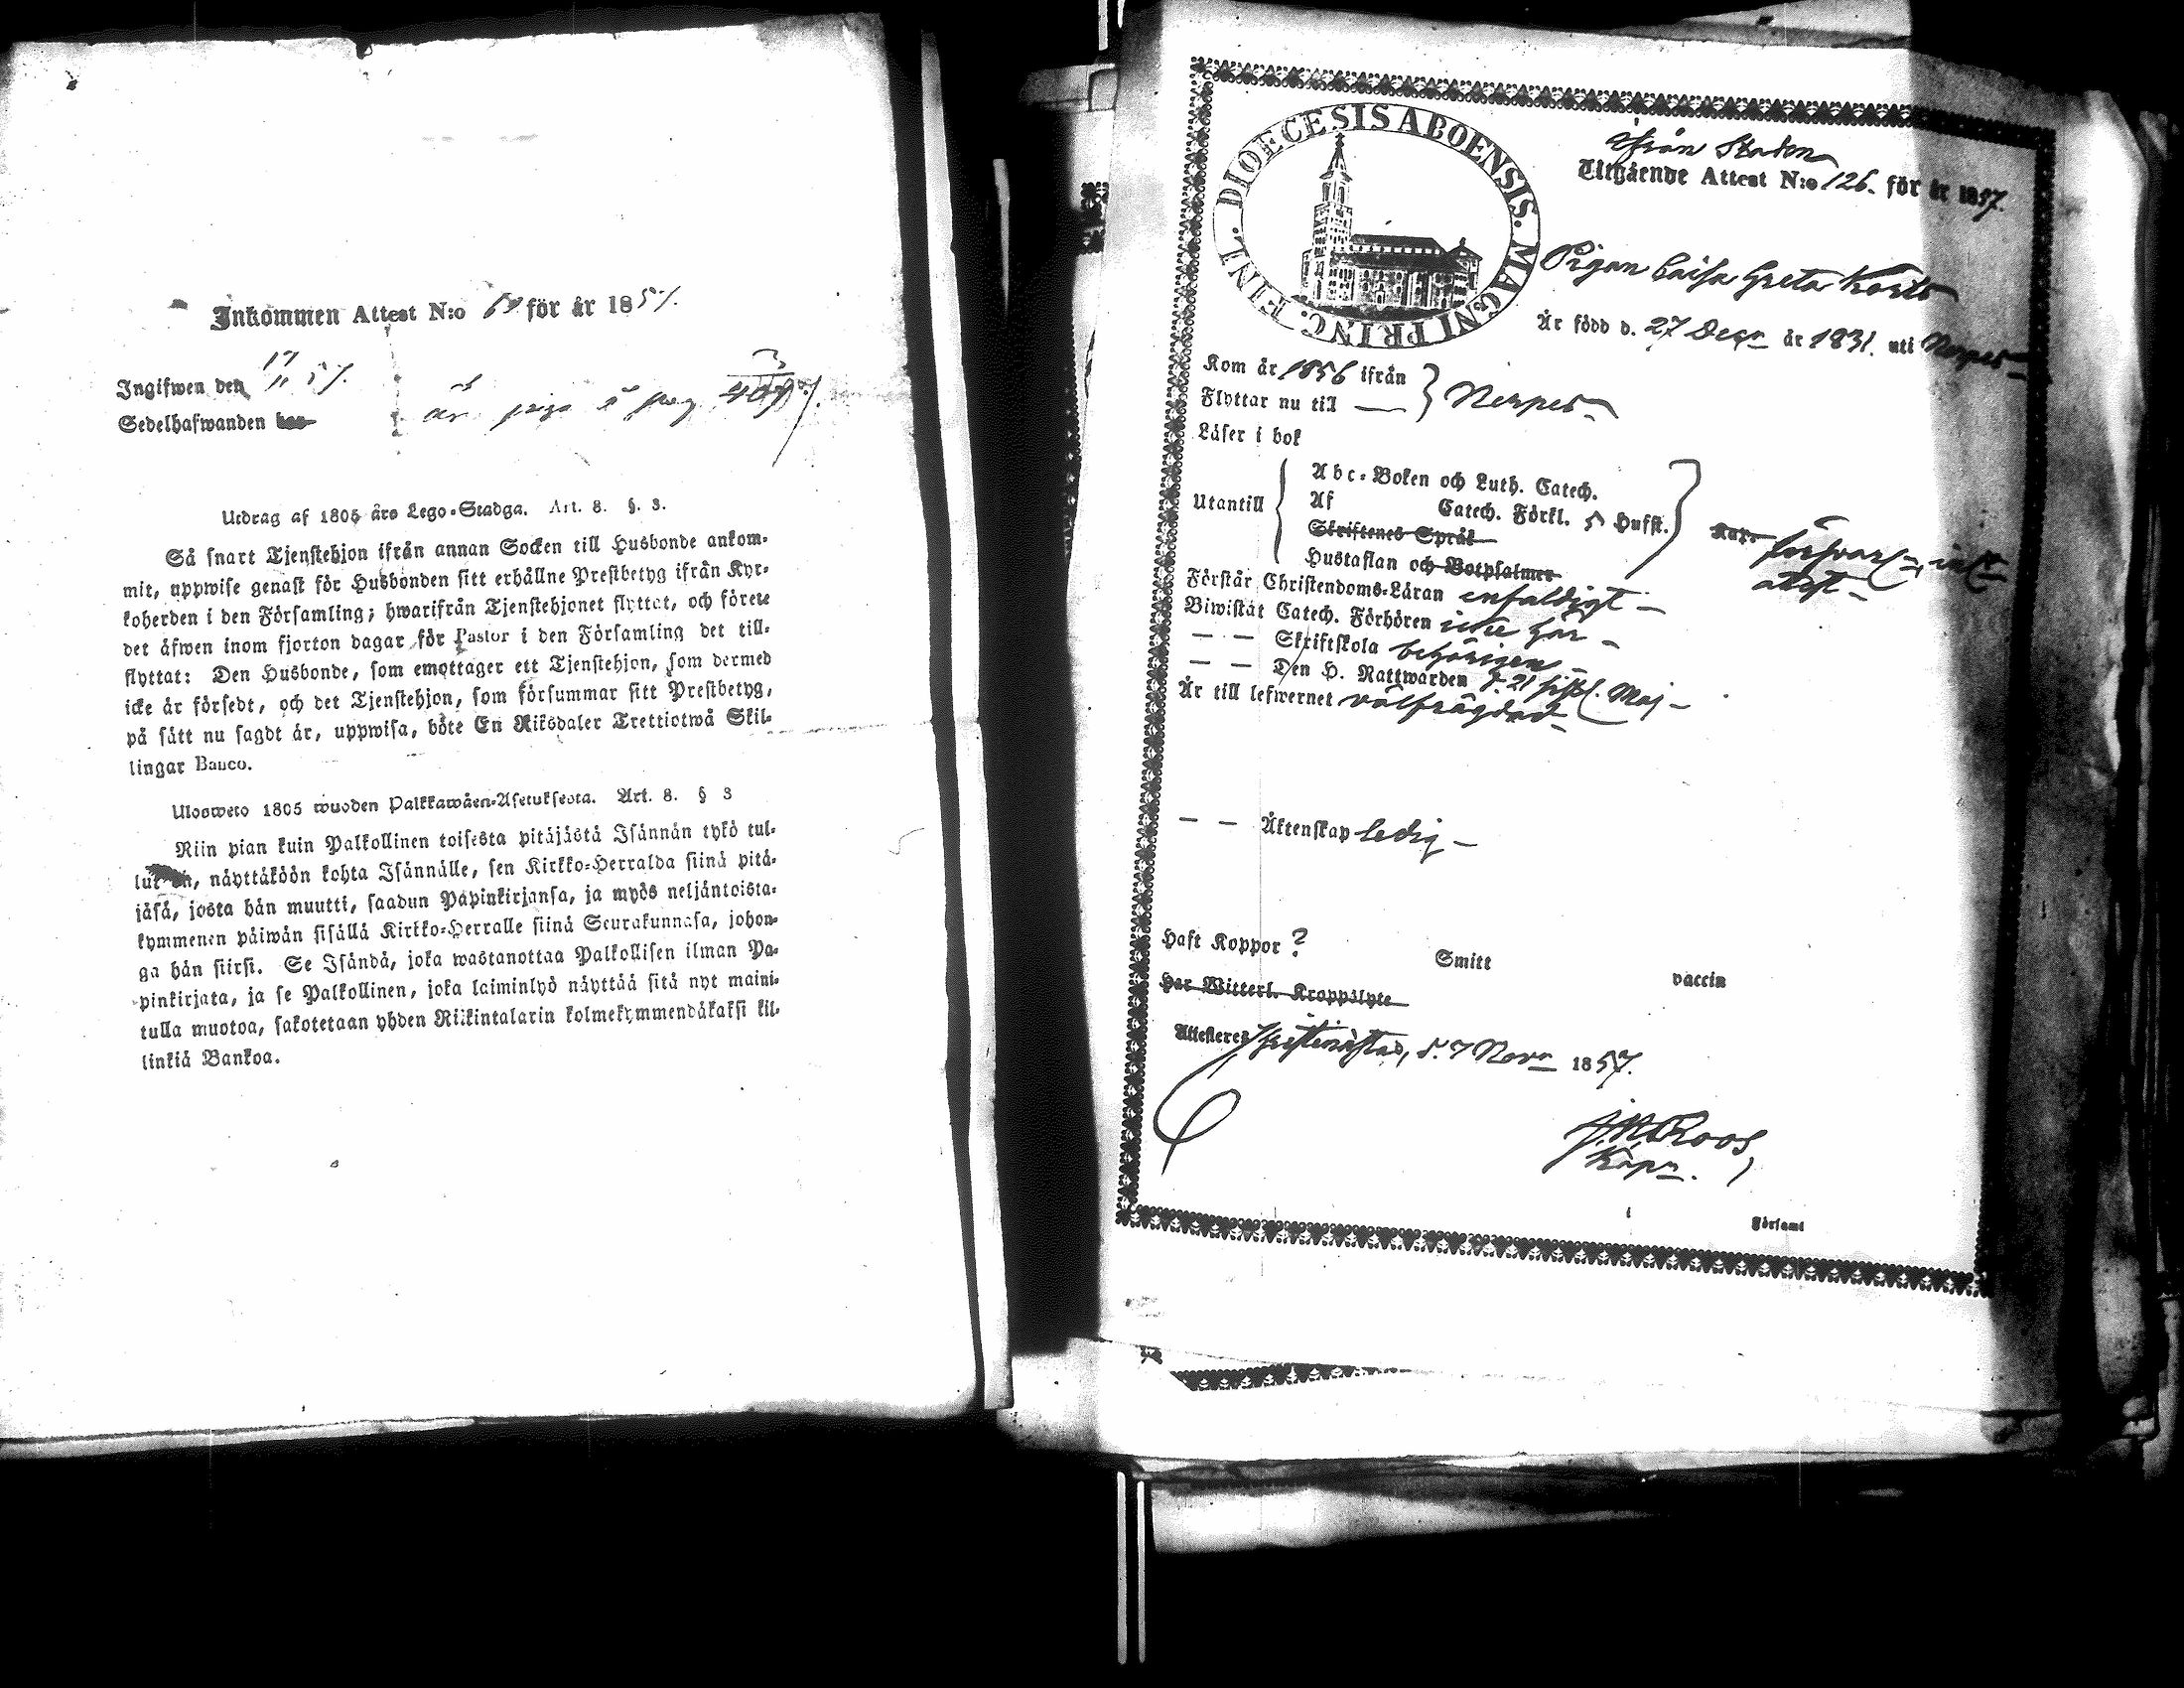 Inkommen Attest N:o för år 185
Ingifwen den 17/11 57.
Sedelhafwanden har
Utdrag af 1805 års Lego-Stadga. Art. 8. §. 3.
Så snart Tjenstehjon ifrån annan Socken till Husbonde ankom-
mit, uppwise genast för Husbonden sitt erhållne Prestbetyg ifrån Kyr-
koherden i den Församling; hwarifrån Tjenstehjonet flyttat, och förete
det äfwen inom fjorton dagar för Pastor i den Församling det till-
flyttat: Den Husbonde, som emottager ett Tjenstehjon, som dermed
icke är försedt, och det Tjenstehjon, som försummar sitt Prestbetyg,
på sätt nu sagdt är, uppwisa, böte En Riksdaler Trettiotwå Skil-
lingar Banco.
Ulosweto 1805 wuoden Palkkawäen-Asetuksesta. Art. 8. § 3
Niin pian kuin Palkollinen toisesta pitäjästä Isännän tykö tul-
lut on, näyttäköön kohta Isännälle, sen Kirkko-Herralda siinä pitä-
jäsä, josta hän muutti, saadun Papinkirjansa, ja myös neljäntoista-
kymmenen päiwän sisällä Kirkko-Herralle siinä Seurakunnasa, johon-
ga hän siirsi. Se Isändä, joka wastanottaa Palkollisen ilman Pa-
pinkirjata, ja se Palkollinen, joka laiminlyö näyttää sitä nyt maini-
tulla muotoa, sakotetaan yhden Riikintalarin kolmekymmendäkaksi kil-
linkiä Bankoa.
DIOECESIS ABOENSIS. MAGNI PRINC. FINL.
Ifrån Staden
Utgående Attest N:o 126. för år 1857.
Pigan Caisa Greta
Är född d. 27 Decr år 1831. uti Nerpes
Kom år 1856 ifrån
Flyttar nu till — } Nerpes
Läser i bok
Abc-Boken och Luth. Catech.
Utantill Af Catech. Förkl. 5 Hufst.
Skriftenes Språk
Hustaflan och Botpsalmer
attest
Förstår Christendoms-Läran enfaldigt
Biwistat Catech. Förhören icke här
— — Skriftskola behörigen
— — Den H. Nattwarden d. 21 sistl. Maj
Är till lefwernet välfrägdad
— — Äktenskap ledig
Haft Koppor ? Smitt vaccin
Har Witterl. Kroppslyte
Attesteres Christinæstad, d. 7 Novr 1857.
J. M. Roos
Kapn.
i Församl